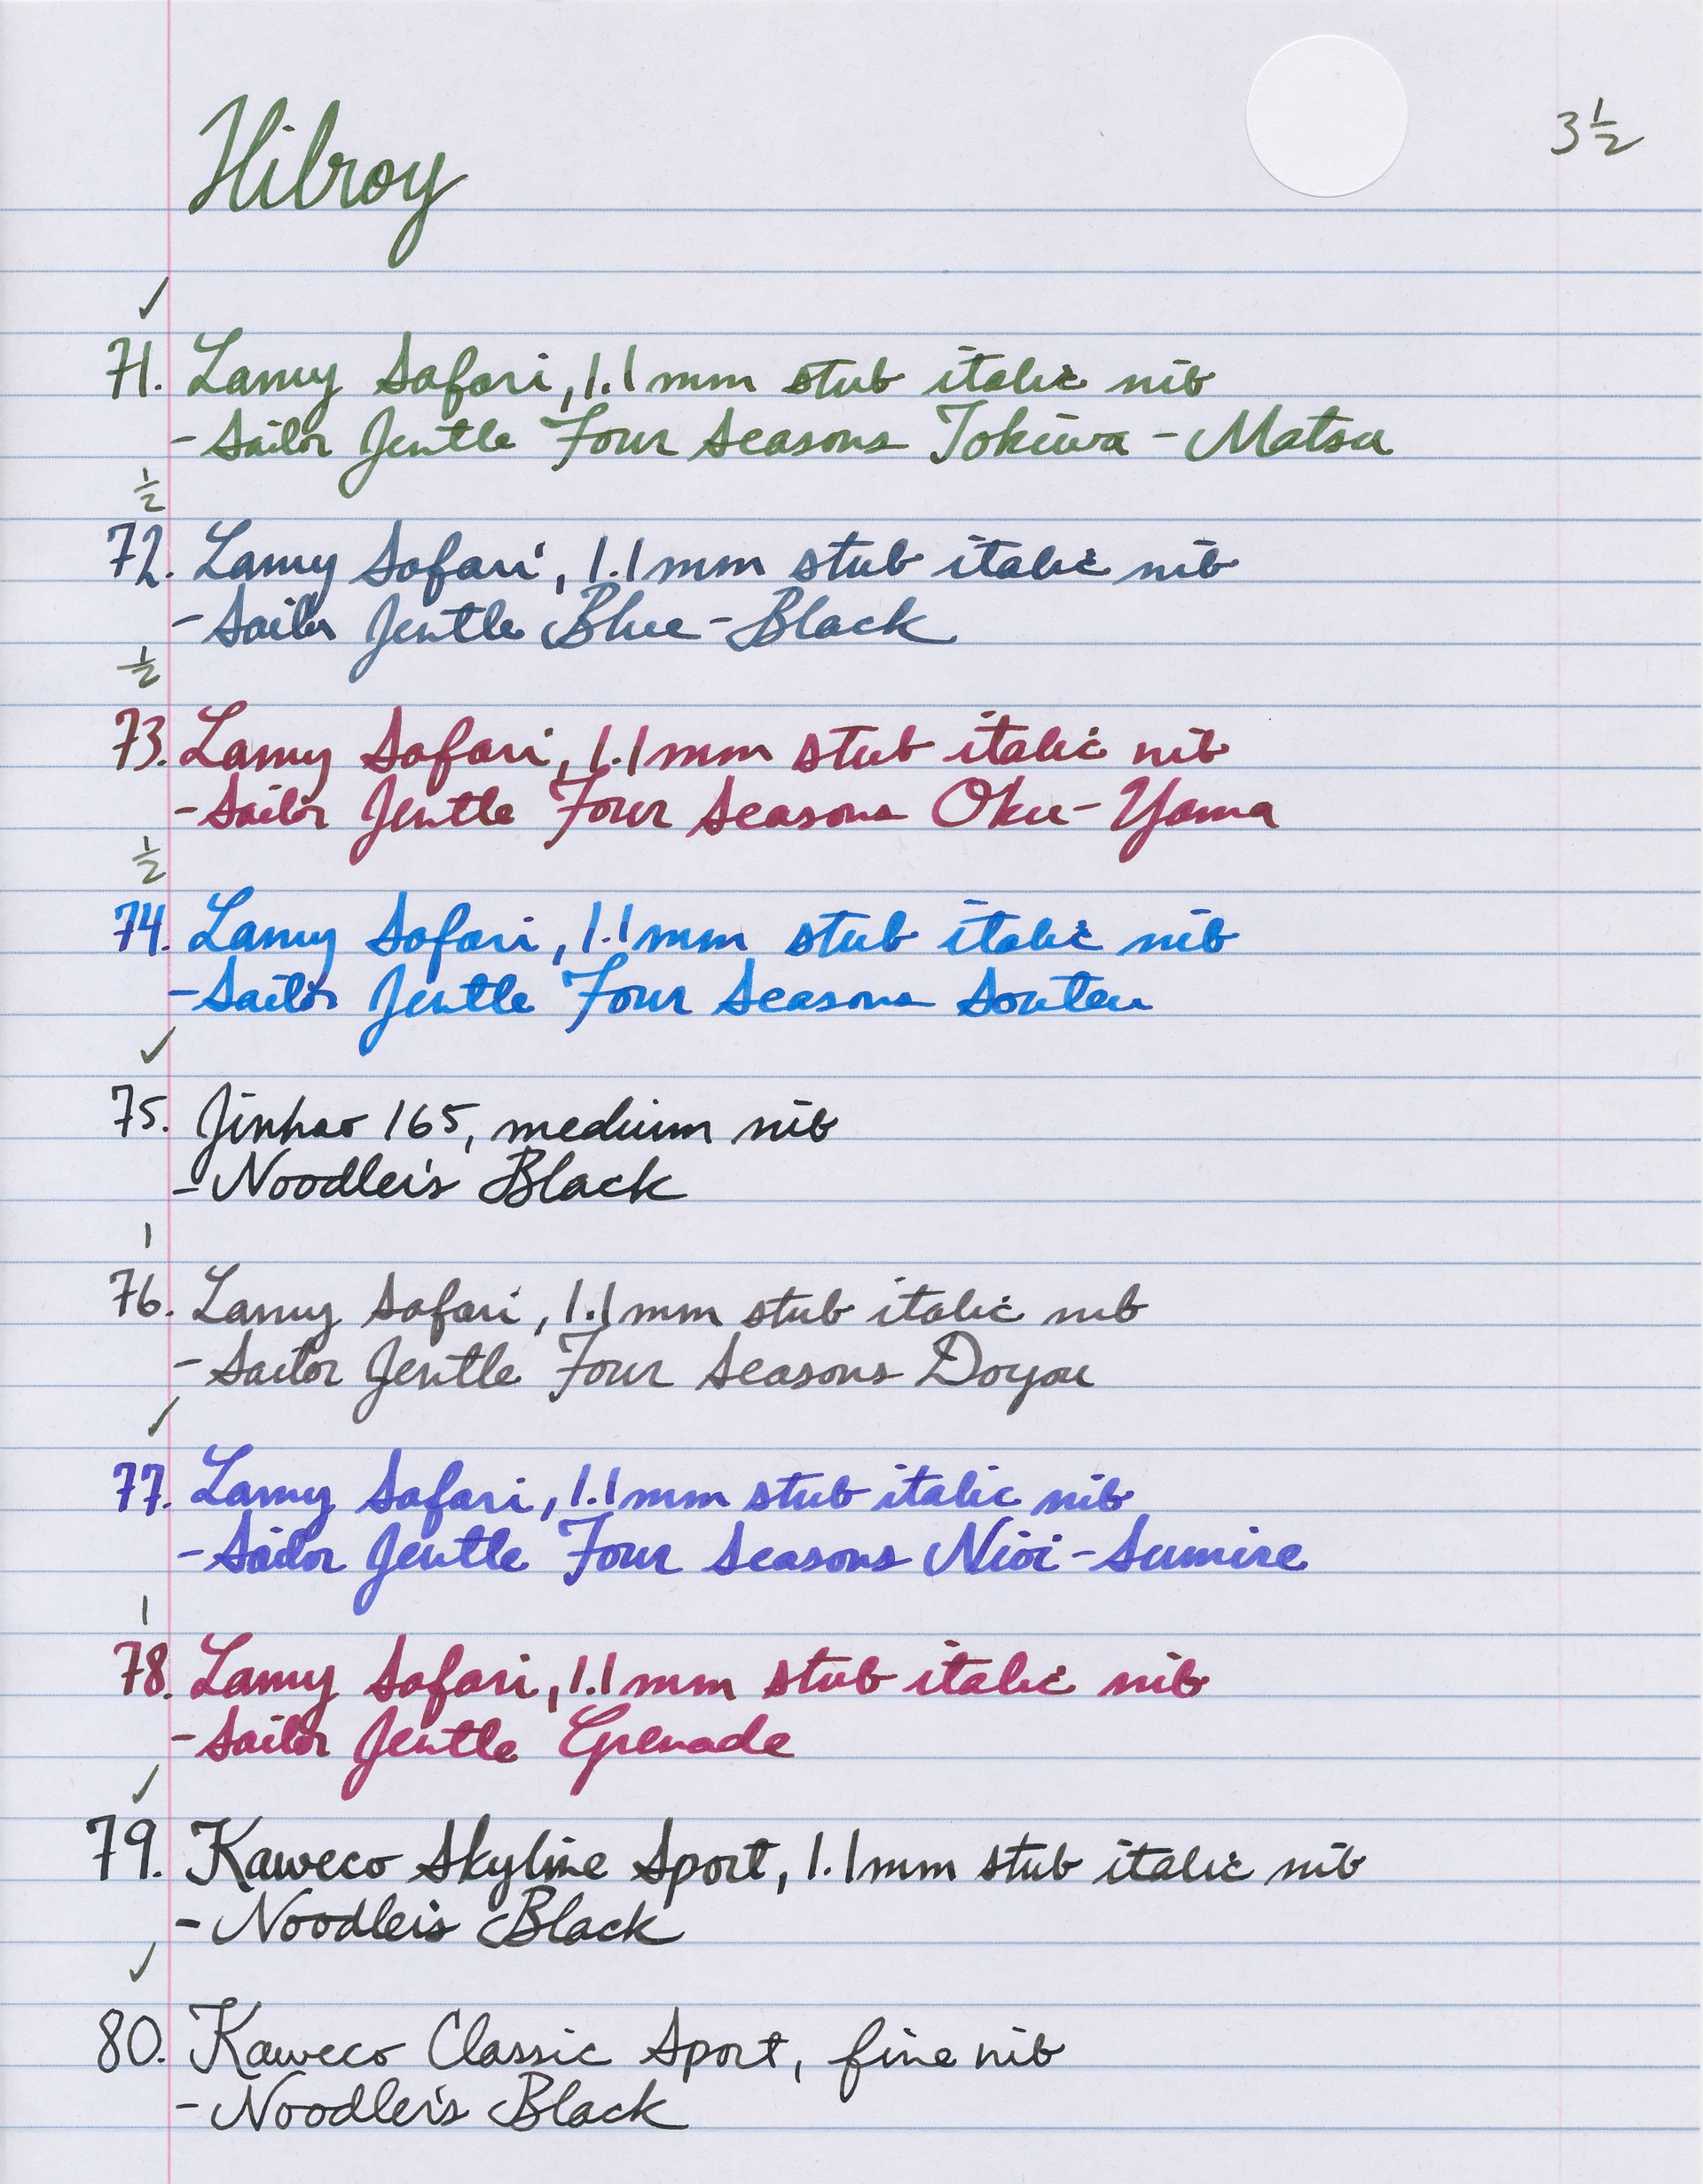 Hilroy
3 1/2
✓
71. Lamy Safari, 1.1mm stub italic nib
- Sailor Jentle Four Seasons Tokiwa-Matsu
1/2
72. Lamy Safari, 1.1mm stub italic nib
- Sailor Jentle Blue-Black
1/2
73. Lamy Safari, 1.1mm stub italic nib
- Sailor Jentle Four Seasons Oku-Yama
1/2
74. Lamy Safari, 1.1mm stub italic nib
- Sailor Jentle Four Seasons Souten
✓
75. Jinhao 165, medium nib
- Noodler's Black
1
76. Lamy Safari, 1.1mm stub italic nib
- Sailor Jentle Four Seasons Doyou
✓
77. Lamy Safari, 1.1mm stub italic nib
- Sailor Jentle Four Seasons Nioi-Sumire
1
78. Lamy Safari, 1.1mm stub italic nib
- Sailor Jentle Grenade
✓
79. Kaweco Skyline Sport, 1.1mm stub italic nib
- Noodler's Black
✓
80. Kaweco Classic Sport, fine nib
- Noodler's Black